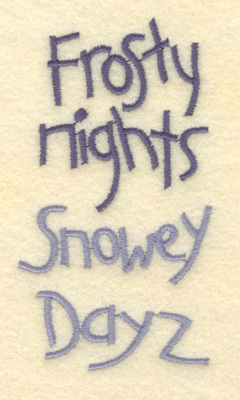 Frosty
nights
Snowey
Dayz